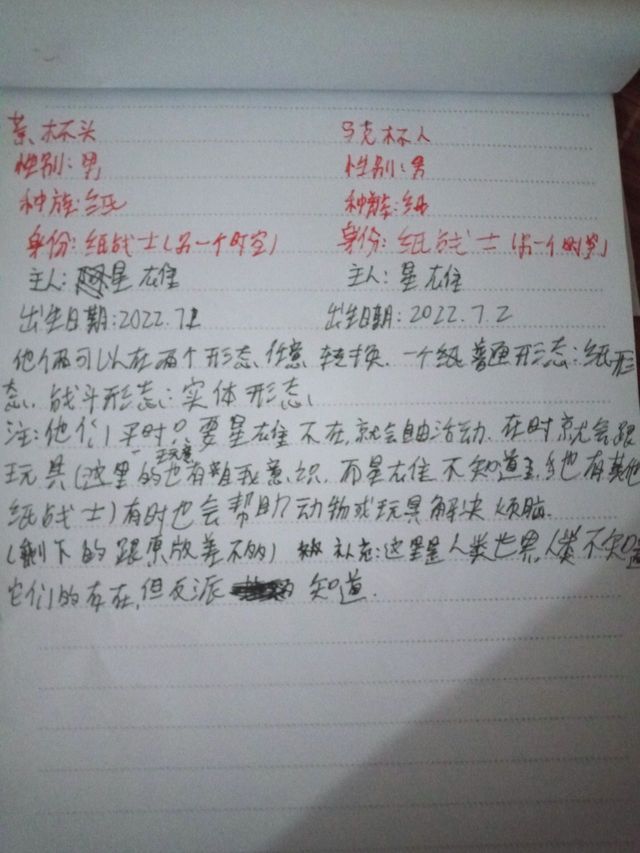 茶杯头 马克杯人
性别：男 性别：男
种族：纸 种族：纸
身份：纸战士（另一个时空） 身份：纸战士（另一个时空）
主人：星雄 主人：星雄
出生日期：2022.7.2 出生日期：2022.7.2
他俩可以在两个形态任意转换.一个纸普通形态：纸形
态、战斗形态：实体形态、
注：他们平时只要星雄不在,就会自由活动.在时就会跟
玩具（这里的玩具也有自我意识.而星雄不知道 也有其他
纸战士）有时也会帮助动物或玩具解决烦恼.
（剩下的跟原版差不多） 补充：这里是人类世界,人类不知道
它们的存在,但反派 知道.